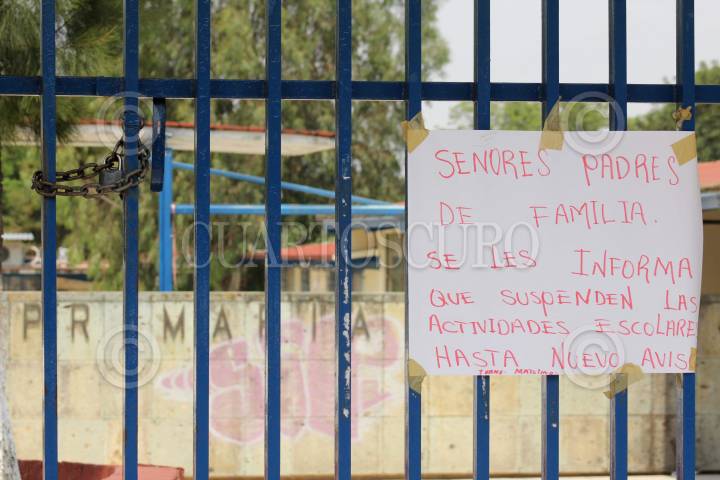 SEÑORES PADRES
DE FAMILIA.
SE LES INFORMA
QUE SUSPENDEN LAS
ACTIVIDADES ESCOLARE
HASTA NUEVO AVIS
CUARTOSCURO
PR MARIA